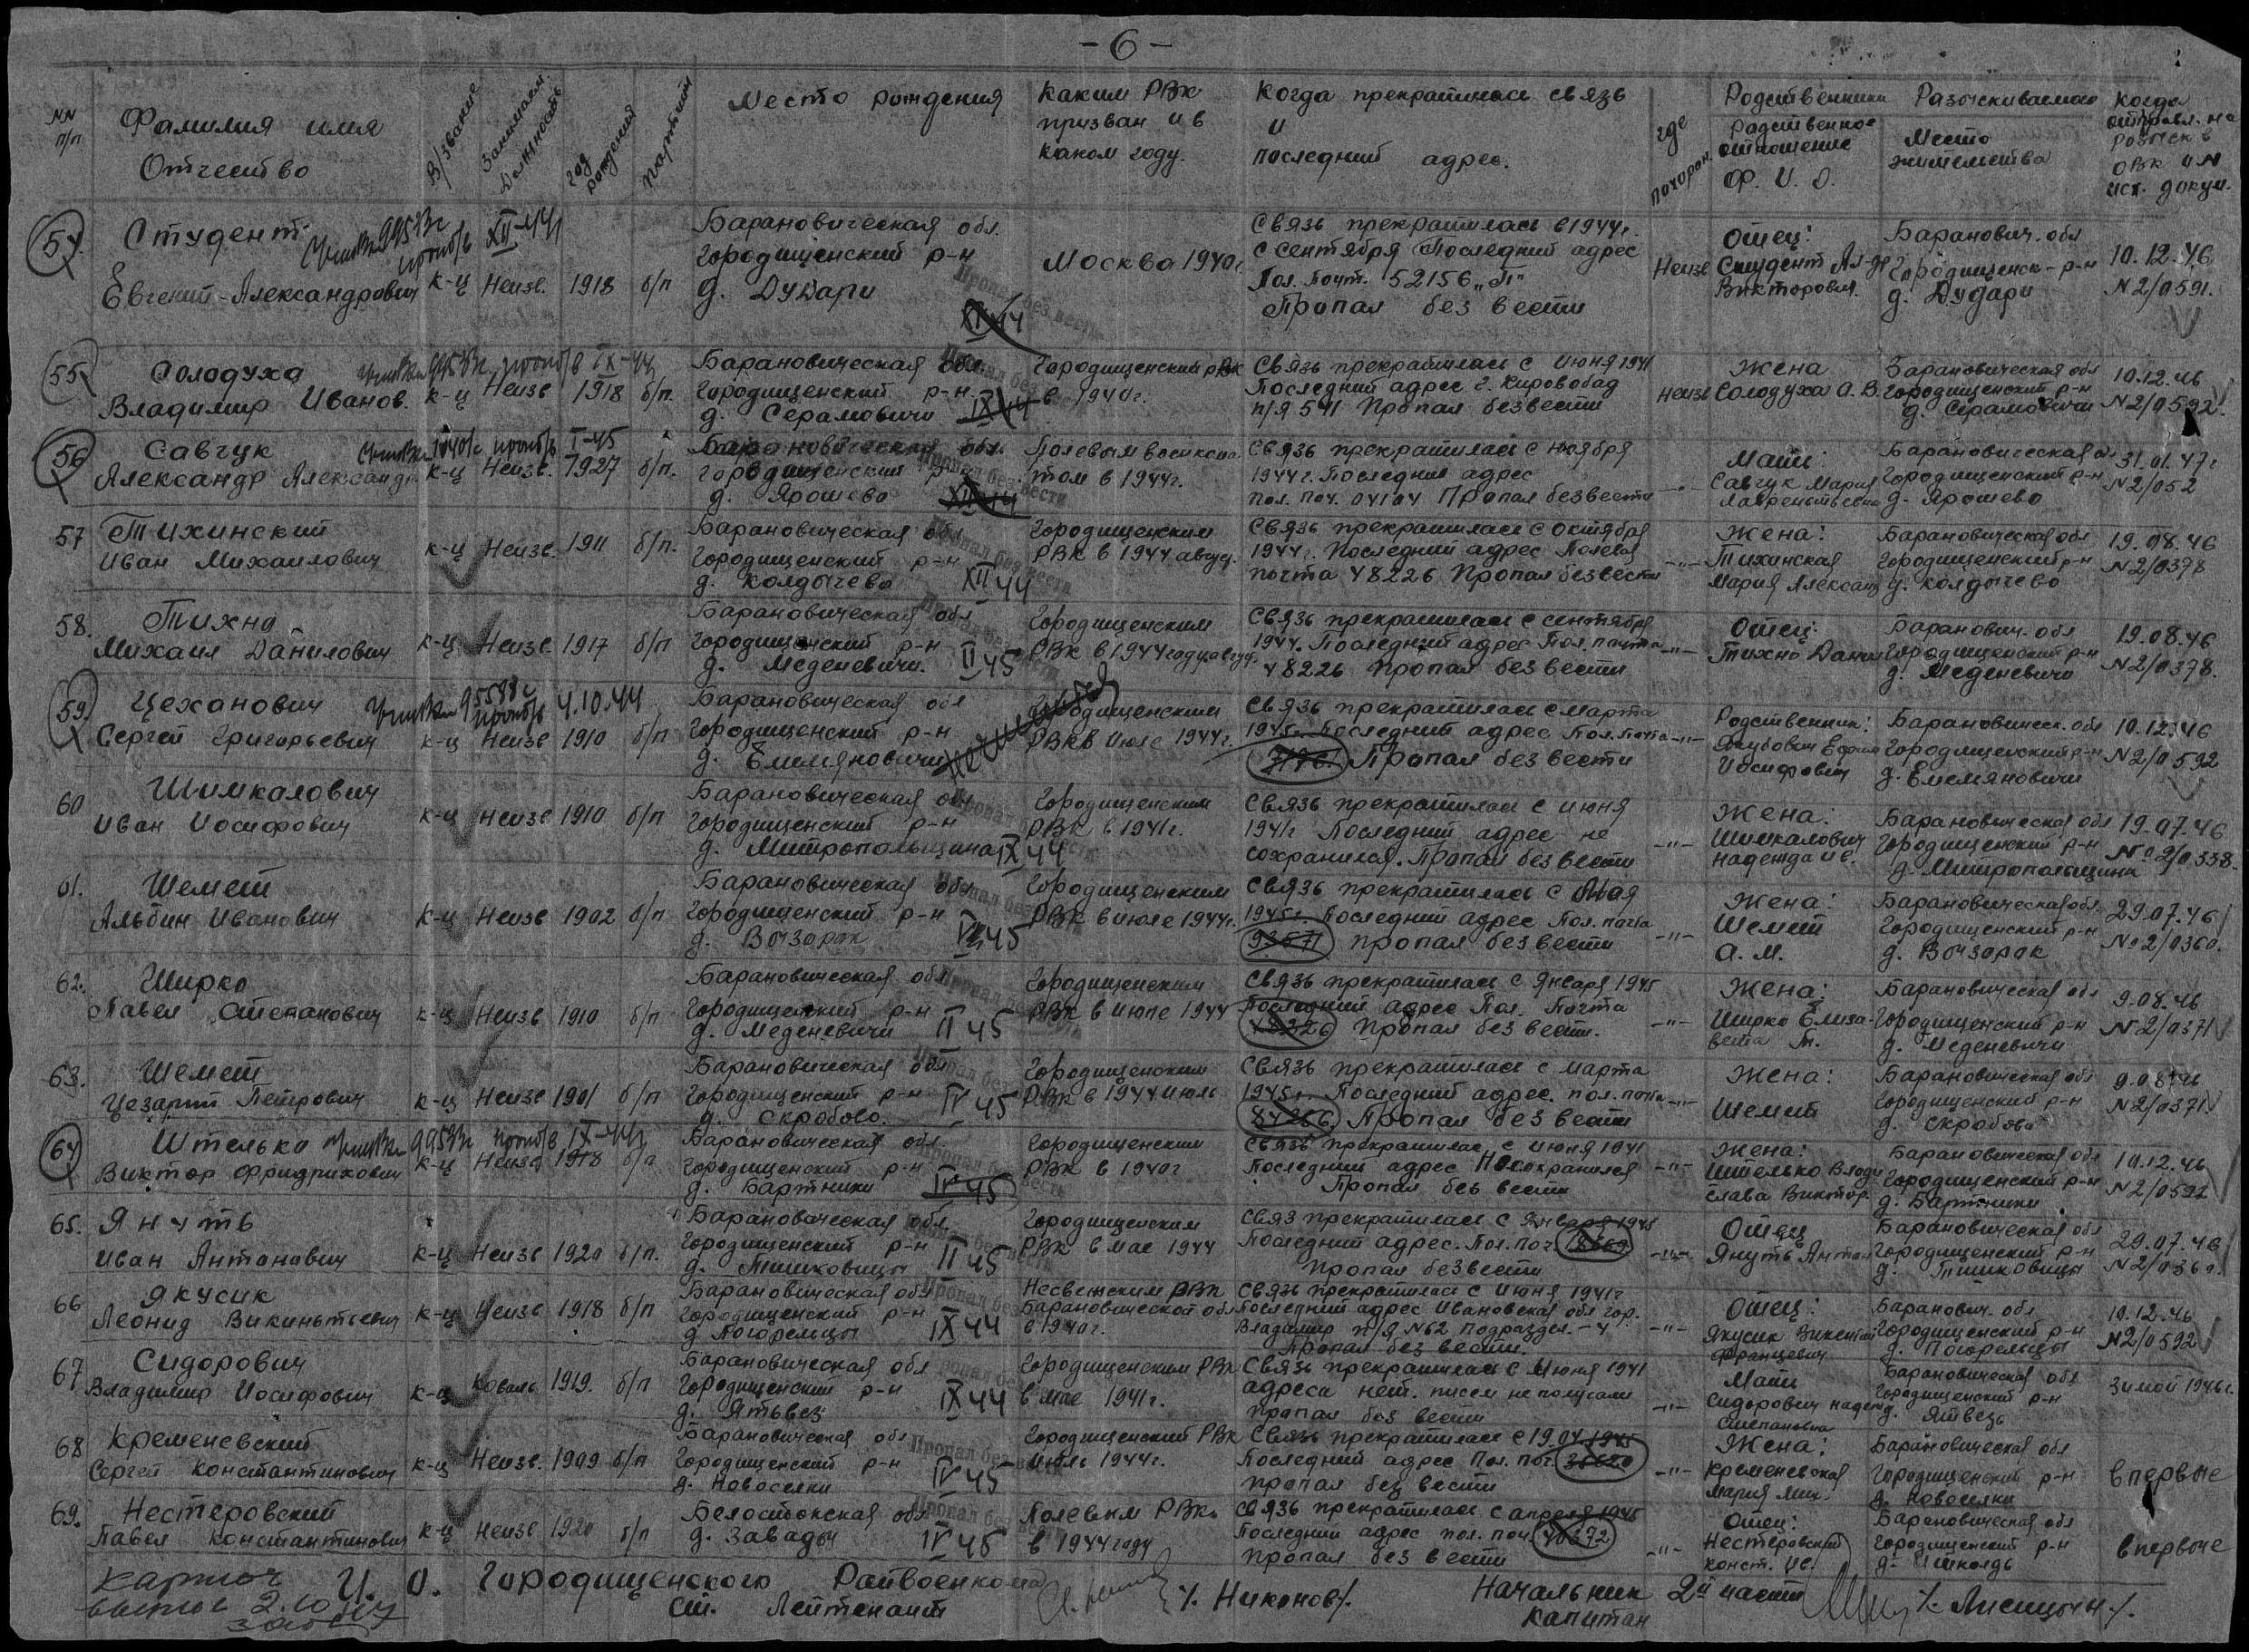 - 6 -
NN п/п
Фамилия имя Отчество
В/звание
Занимаем. должность
год рождения
партийн
Место рождения
Каким РВК призван и в каком году.
Когда прекратилась связь и последний адрес.
где похорон.
Родственники Разыскиваемого
Родственное отношение Ф. И. О.
Место жительства
Когда отправл. на розыск в ОВК и № исх. докум.
54.
Студент
XII-44
Евгений-Александрович
к-ц Неизв. 1918 б/п
Барановическая обл.
Городищенский р-н
д. Дудари
Москва 1940г.
Связь прекратилась в 1944г.
с сентября Последний адрес
Пол. Почт. 52156 „П"
Пропал без вести
Неизв
Отец:
Студент Ал-др
Викторович.
Баранович. обл
Городищенск-р-н
д. Дудари
10.12.46
N 2/0591.
55.
Солодуха
IX-44
Владимир Иванов.
к-ц Неизв 1918 б/п.
Барановическая обл.
Городищенский р-н.
д. Серамовичи IX 44
Городищенский РВК
в 1940г.
Связь прекратилась с июня 1941
Последний адрес г. Кировобад
п/я 541 Пропал безвести
неизв
Жена
Солодуха А. В.
Барановическая обл
Городищенский р-н
д. Серамовичи
10.12.46
N 2/0592.
56
Савчук
I-45
Александр Александр.
к-ц Неизв. 1927 б/п.
Барановическая обл.
Городищенский р-н
д. Ярошево
Полевым военкома-
том в 1944г.
Связь прекратилась с ноября
1944г. Последний адрес
пол. поч. 04104 Пропал безвести
-"-
Мать:
Савчук Мария
Лаврентьевна
Барановическая об
Городищенский р-н
д. Ярошево
31.01.47г
N 2/052
57
Тихинский
Иван Михайлович
к-ц Неизв. 1911 б/п.
Барановическая обл.
Городищенский р-н
д. Колдычево XII 44
Городищенским
РВК в 1944 август.
Связь прекратилась с октября
1944г. Последний адрес Полевая
почта 48226 Пропал безвести
-"-
Жена:
Тихинская
Мария Александ
Барановическая обл
Городищенский р-н
д. Колдычево
19.08.46
N 2/0378
58.
Тихно
Михаил Данилович
к-ц Неизв. 1917 б/п
Барановическая обл
Городищенский р-н
д. Меденевичи. II 45
Городищенским
РВК в 1944 году август.
Связь прекратилась с сентября
1944. Последний адрес Пол. почта
48226 Пропал без вести
-"-
Отец:
Тихно Данил
Баранович. обл
Городищенский р-н
д. Меденевичи
19.08.46
N 2/0378.
59.
Цеханович
4.10.44
Сергей Григорьевич
к-ц Неизв 1910 б/п
Барановическая обл
Городищенский р-н
д. Емемяновичи
Городищенским
РВК в Июле 1944г.
Связь прекратилась с марта
1945г. Последний адрес Пол. почта
Пропал без вести
-"-
Родственник:
Якубович Ефим
Иосифович
Барановическ. обл
Городищенский р-н
д. Емемяновичи
10.12.46
N 2/0592
60
Шимкалович
Иван Иосифович
к-ц Неизв 1910 б/п
Барановическая обл
Городищенский р-н
д. Митропольщина IX 44
Городищенским
РВК в 1941г.
Связь прекратилась с июня
1941г Последний адрес не
сохранился. Пропал без вести
-"-
Жена:
Шимкалович
Надежда Ив.
Барановическая обл
Городищенский р-н
д. Митропольщина
19.07.46
№ 2/0338.
61.
Шемет
Альбин Иванович
к-ц Неизв 1902 б/п
Барановическая обл.
Городищенский р-н
45
Городищенским
РВК в июле 1944г.
Связь прекратилась с Мая
1945г. Последний адрес Пол. почта
93571 пропал без вести
-"-
Жена:
Шемет
А. М.
Барановическая обл.
Городищенский р-н
29.07.46
No 2/0360.
62.
Ширко
Павел Степанович
к-ц Неизв 1910 б/п
Барановическая обл
Городищенский р-н
д. Меденевичи II 45
Городищенским
РВК в июле 1944
Связь прекратилась с Января 1945
Последний адрес Пол. Почта
Пропал без вести.
-"-
Жена:
Ширко Елиза-
вета М.
Барановическая обл
Городищенский р-н
д. Меденевичи
9.08.46
N 2/0371
63.
Шемет
Цезарий Петрович
к-ц Неизв 1901 б/п
Барановическая обл
Городищенский р-н
д. Скробово. IV 45
Городищенским
РВК в 1944 июль
Связь прекратилась с марта
1945г. Последний адрес. пол. почта
Пропал без вести
-"-
Жена:
Шемет
Барановическая обл
Городищенский р-н
д. Скробово
9.08.46
N 2/0371
64
Штелько
IX-44
Виктор Фридрихович
к-ц Неизв 1918 б/п
Барановическая обл.
Городищенский р-н
д. Бартники IV 45
Городищенским
РВК в 1940г
Связь прекратилась с июня 1941
Последний адрес Несохранился
Пропал без вести
-"-
Жена:
Штелько Влади
слава Виктор.
Барановическая обл
Городищенский р-н
д. Бартники
10.12.46
N 2/0592
65.
Януть
Иван Антонович
к-ц Неизв 1920 б/п.
Барановическая обл.
Городищенский р-н
д. Тишковцы II 45
Городищенским
РВК в мае 1944
Связ прекратилась с Января 1945
Последний адрес. Пол. поч.
Пропал безвести
-"-
Отец
Януть Антон
Барановическая обл
Городищенский р-н
д. Тишковцы
29.07.46
N 2/0360.
66
Якусик
Леонид Викентьевич
к-ц Неизв 1918 б/п
Барановическая обл
Городищенский р-н
д Погорельцы IX 44
Несвежским РВК
Барановической обл
в 1940г.
Связь прекратилась с Июня 1941г
Последний адрес Ивановская обл гор.
Владимир п/я N62 подраздел. - 4
Пропал без вести.
-"-
Отец:
Якусик Викентий
Францевич
Баранович. обл
Городищенский р-н
д. Погорельцы
10.12.46
N 2/0592
67
Сидорович
Владимир Иосифович
к-ц Коваль 1919. б/п
Барановическая обл
Городищенский р-н
д. Ятьвез IX 44
Городищенским РВК
в мае 1941г.
Связь прекратилась с Июня 1941
адреса нет. писем не получали
пропал без вести
-"-
Мать
Сидорович Надеж
Степановна
Барановическая обл
Городищенский р-н
д. Ятвезь
Зимой 1946г.
68
Кременевский
Сергей Константинович
к-ц Неизв. 1909 б/п
Барановическая обл
Городищенский р-н
д. Новоселки IV 45
Городищенский РВК
июль 1944г.
Связь прекратилась с 19.04.1945
Последний адрес Пол. поч.
пропал без вести
-"-
Жена:
Кременевская
Мария Мих.
Барановическая обл
Городищенский р-н
д. Новоселки
впервые
69.
Нестеровский
Павел Константинович
к-ц Неизв 1920 б/п
Белостокская обл
д. Завады IV 45
Полевым РВК
в 1944 году
Связь прекратилась с апреля 1945
Последний адрес пол. поч.
пропал без вести
-"-
Отец:
Нестеровский
Конст. Ив.
Барановическая обл
Городищенский р-н
впервые
И. О. Городищенского Райвоенкома
Ст. Лейтенант /. Никонов/.
Начальник 2й части
Капитан /. Лисицын /.